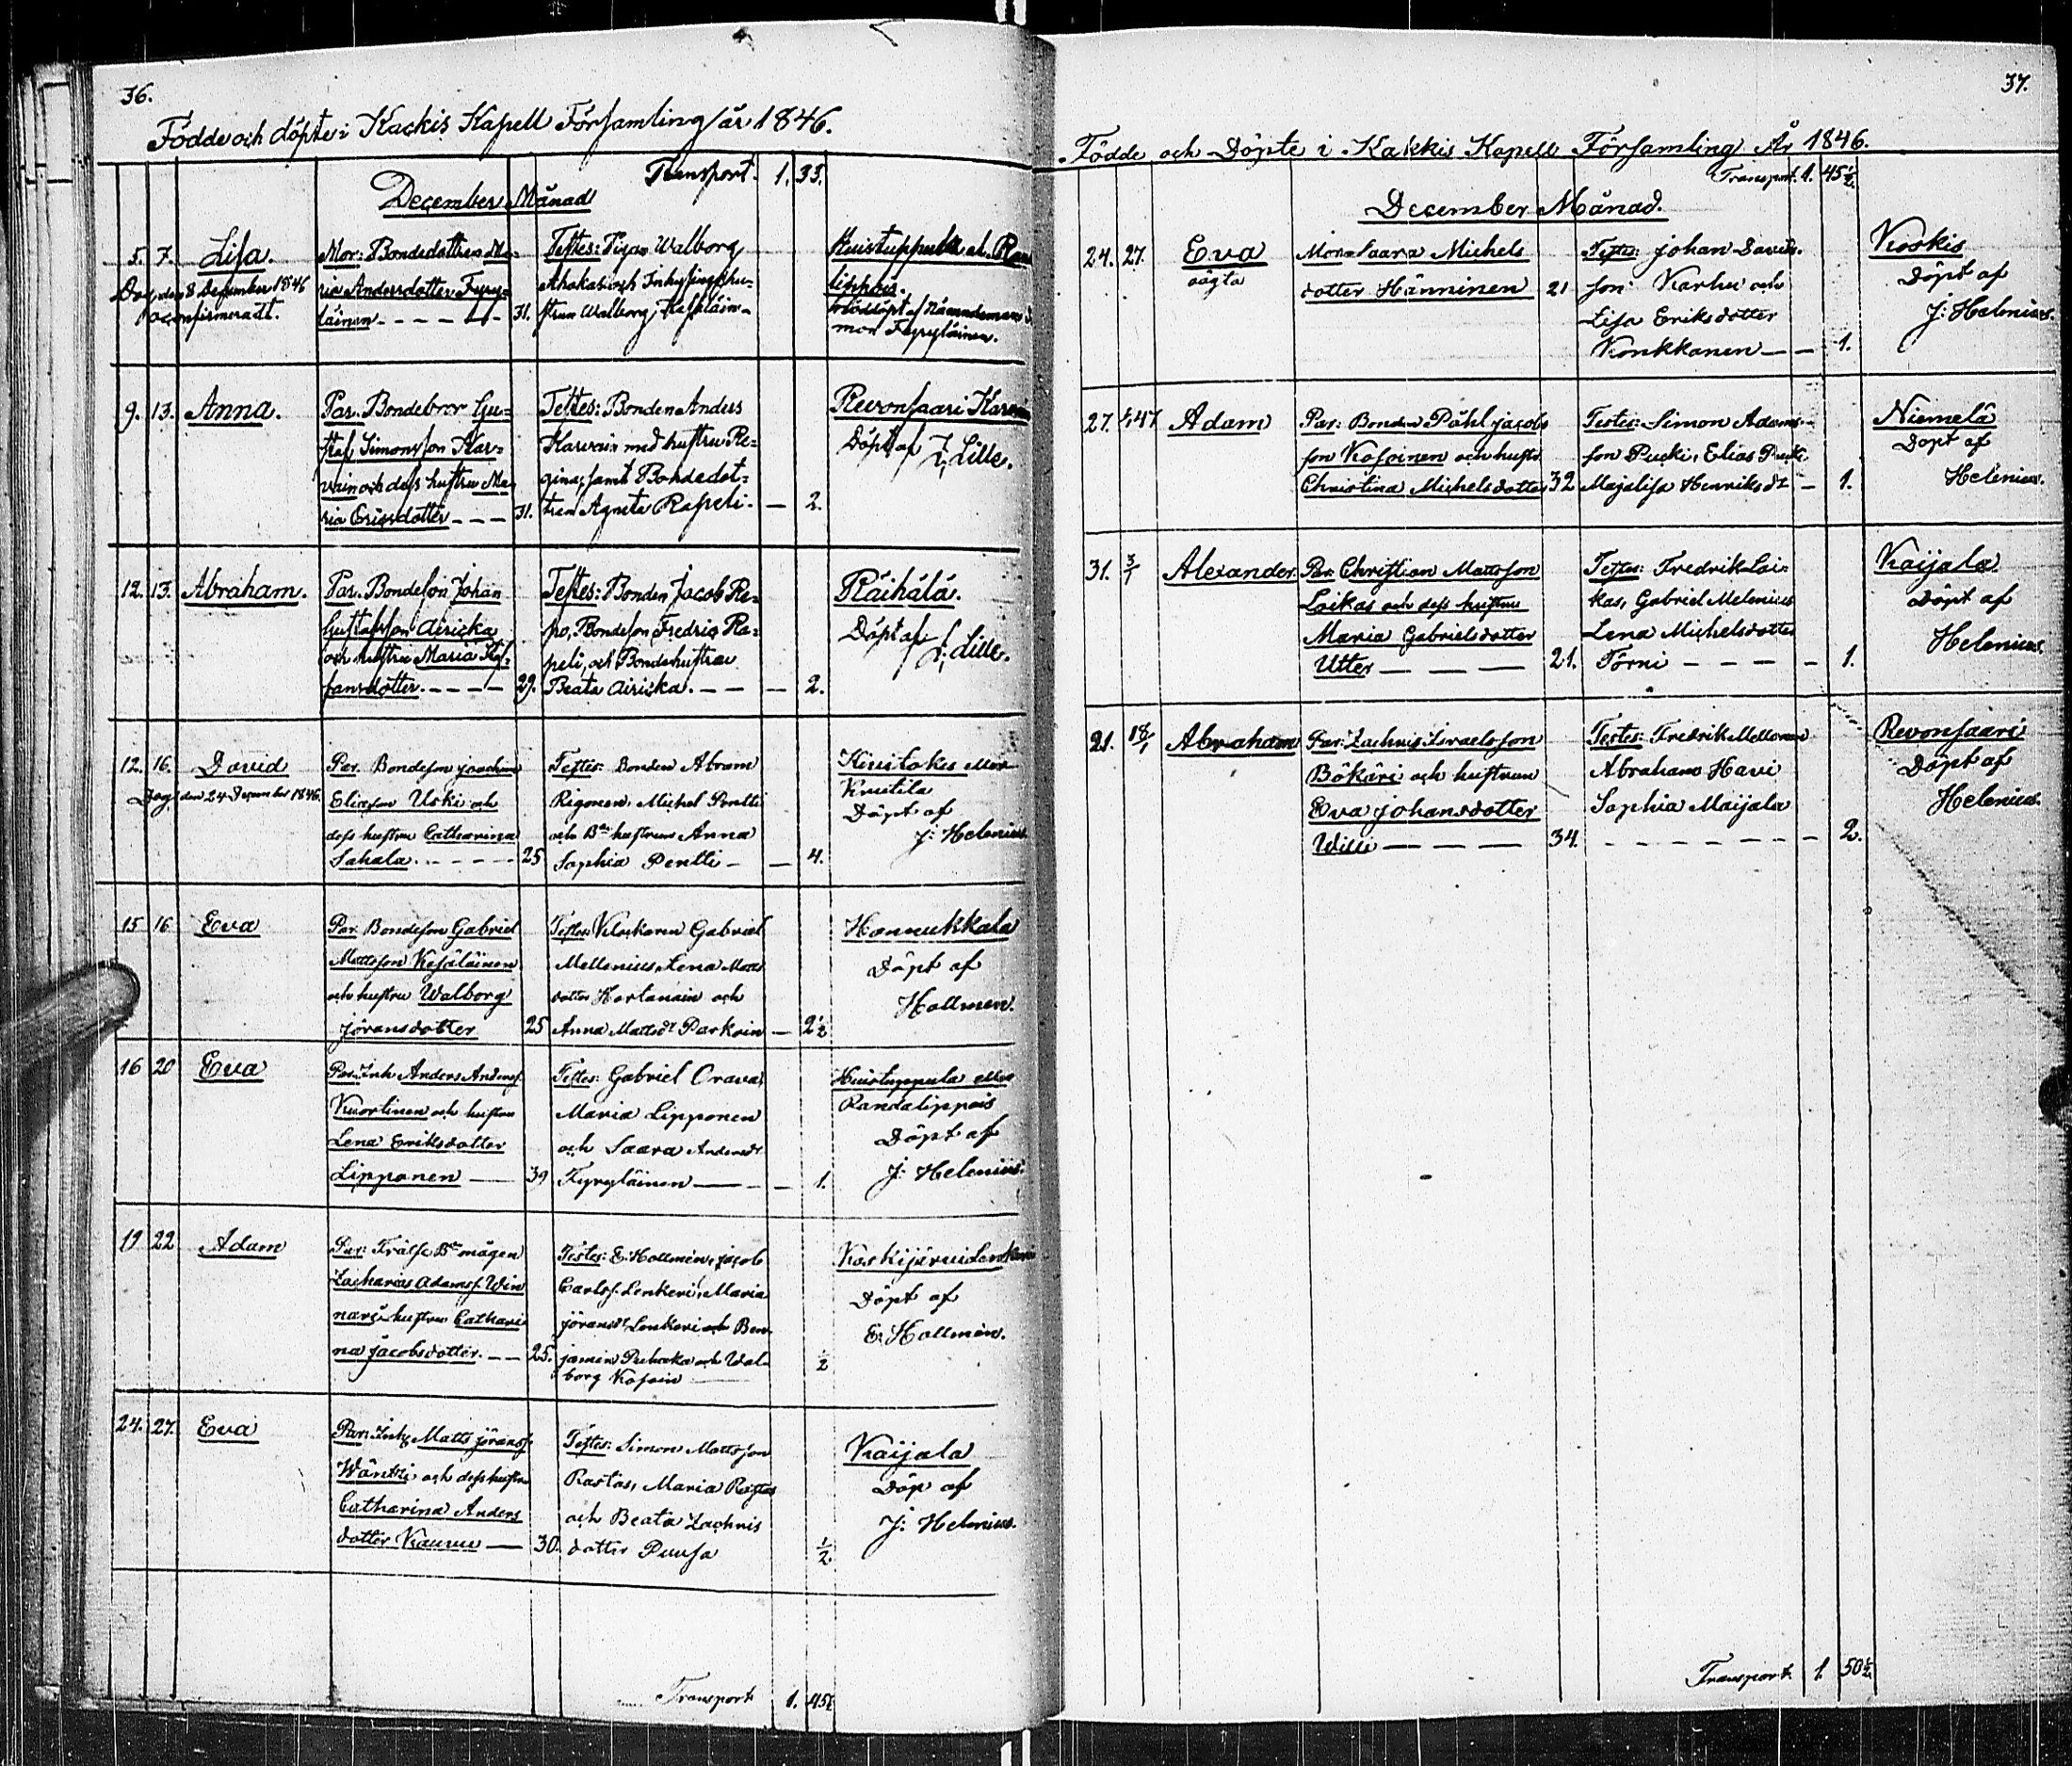 36.
Födde och döpte i Kackis Kapell Församling år 1846.
Transport. 1. 33.
December Månad
5. 7. Lisa.
Dog den 8 December 1846
oconfirmeradt.
Mor: Bondedottren Ma-
ria Andersdotter Fyry-
läinen - - - - 31.
Testes: Pigan Walborg
och Inhysingshu-
strun Walborg
Kuistuppula el. Ran
lippis.
nöddöpt af Nämndeman
Fyryläinen.
9. 13. Anna.
Par. Bondebror Gu-
staf Simonsson Kar-
vain och dess hustru Ma
ria Ericsdotter - - - 31.
Testes: Bonden Anders
Karvain med hustru Re-
gina, samt Bondedot-
tren Agneta Rapeli. - 2.
Revonsaari Karvain
Döpt af
J. Lille.
12. 13. Abraham.
Par. Bondeson Johan
Gustafsson Airicka
och hustru Maria Staf-
fansdotter. - - - - 29.
Testes: Bonden Jacob Re-
po, Bondeson Fredric Ra-
peli, och Bondehustrun
Beata Airicka. - - - 2.
Räihälä.
Döpt af
J. Lille.
12. 16. David
Dog den 24 December 1846.
Par. Bondeson Joachim
Eliasson Uski och
dess hustru Catharina
Sahala. - - - - - 25
Testes: Bonden Abram
Rigonen, Michel Pentti
och Bde hustrun Anna
Sophia Pentti - - 4.
Kiislakis eller
Knutila
Döpt af
J: Helenius
15 16 Eva
Par. Bondeson Gabriel
Mattsson Kesäläinen
och hustru Walborg
Jöransdotter 25
Testes: Klockaren Gabriel
Mellenius, Lena Matts
dotter Hartanain och
Anna Mattsdr Parkoin - 2½
Hannukkala
Döpt af
Hallmen.
16 20 Eva
Par. Inh Anders Anderss.
Kuortinen och hustru
Lena Eriksdotter
Lipponen - 39
Testes: Gabriel Orava,
Maria Lipponen
och Saara Andersdr
Fyryläinen - - - 1.
Kuistuppula eller
Randalippois
Döpt af
J: Helenius.
19 22 Adam
Par: Frälse Bde mågen
Zacharias Adamss. Win
nari hustru Cathari
na Jacobsdotter. - - 25.
Testes: E. Hallmén, Jacob
Carlss. Lenkeri, Maria
Jöransdr Lenkeri och Ben
jamin och Wal-
borg Kosoin ½
Döpt af
E. Hallmén.
24. 27. Eva
Par: Inh. Matts Jöranss.
Wäntzi och dess hustru
Catharina Anders
dotter Kaunu - 30.
Testes: Simon Mattsson
Rastas, Maria Rastas
och Beata Zachris
dotter Puusa ½
Kaijala
Döp af
J: Helenius.
Transport 1. 45½
37.
Födde och Döpte i Kakkis Kapell Församling År 1846.
Transport. 1. 45½.
December Månad.
24. 27. Eva
oägta
Mor Saara Michels
dotter Hänninen 21
Testes: Johan Davids.
son Karhu och
Lisa Eriksdotter
Konkkanen - - 1.
Koskis
Döpt af
J: Helenius.
27. 1/1 47 Adam
Par: Bonden Påhl Jacobs
son Kosoinen och hustr.
Christina Michelsdotter 32
Testes: Simon Adams-
son Pucki, Elias Pucki
Majalisa Henriksdr - 1.
Niemelä
Döpt af
Helenius.
31. 3/1 Alexander.
Par: Christian Mattsson
Loikas och dess hustru
Maria Gabrielsdotter
Utter - - - 21.
Testes: Fredrik Loi-
kas, Gabriel Melenius
Lena Michelsdotter
Törni - - - - - 1.
Kaijala
Döpt af
Helenius.
21. 18/1 Abraham
Par: Zachris Israelsson
Bökäri och hustrun
Eva Johansdotter
Willi - - - - 34.
Testes: Fredrik Mellonen
Abraham Havi
Sophia Maijala
- - - - - - - 2.
Revonsaari
Döpt af
Helenius.
Transport. 1 50½